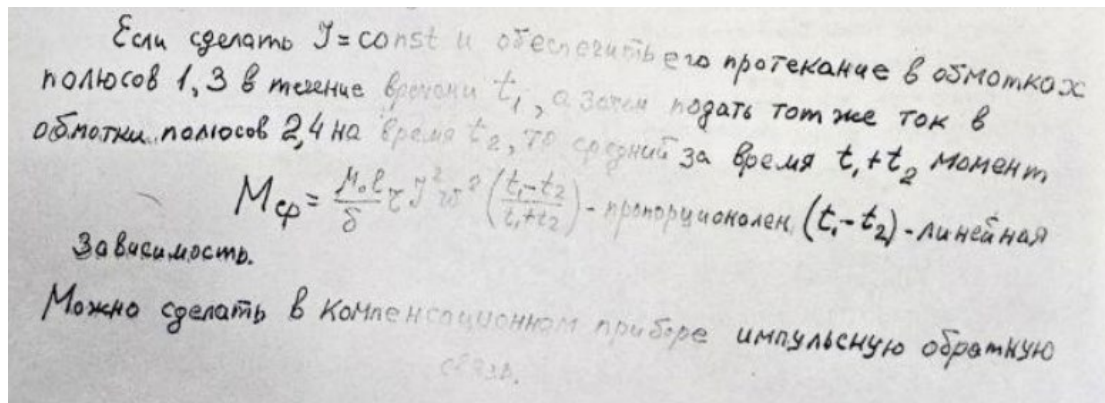 Если сделать J = const и обеспечить его протекание в обмотках
полюсов 1,3 в течение времени t₁, а затем подать тот же ток в
обмотки полюсов 2,4 на время t₂, то средний за время t₁+t₂ момент
Mср = μ₀l/δ τ J² w² (t₁-t₂/t₁+t₂) - пропорционален (t₁-t₂) - линейная
зависимость.
Можно сделать в компенсационном приборе импульсную обратную
связь.